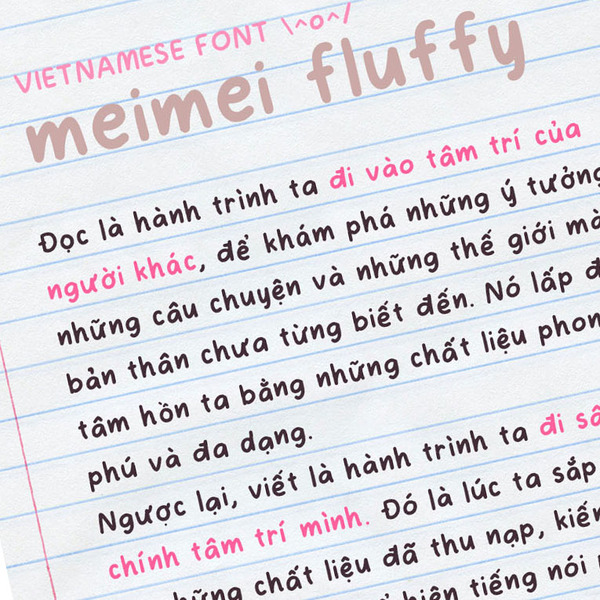 VIETNAMESE FONT \^o^/
meimei fluffy
Đọc là hành trình ta đi vào tâm trí của
người khác, để khám phá những ý tưởng
những câu chuyện và những thế giới mà
bản thân chưa từng biết đến. Nó lấp đ
tâm hồn ta bằng những chất liệu phon
phú và đa dạng.
Ngược lại, viết là hành trình ta đi sâ
chính tâm trí mình. Đó là lúc ta sắp
những chất liệu đã thu nạp, kiến
hiện tiếng nói